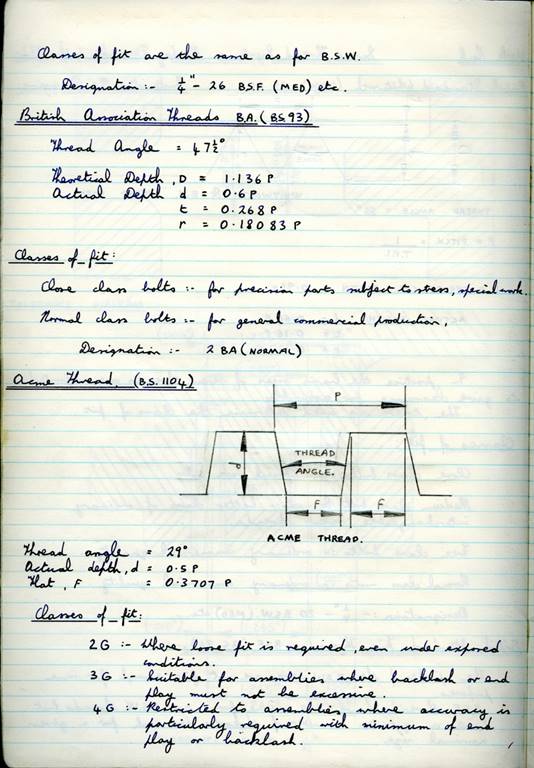 Classes of fit are the same as for B.S.W.
Designation :- 1/4" - 26 B.S.F. (MED) etc.
British Association Threads B.A. (BS 93)
Thread Angle = 47 1/2°
Theoretical Depth, D = 1.136 P
Actual Depth d = 0.6 P
t = 0.268 P
r = 0.18083 P
Classes of fit:
Close class bolts :- for precision parts subject to stress, special work.
Normal class bolts :- for general commercial production.
Designation :- 2 BA (NORMAL)
Acme Thread. (B.S. 1104)
P
d
THREAD
ANGLE.
F
F
ACME THREAD.
Thread angle = 29°
Actual depth, d = 0.5 P
Flat, F = 0.3707 P
Classes of fit:
2 G :- Where loose fit is required, even under exposed
conditions.
3 G :- Suitable for assemblies where backlash or end
play must not be excessive.
4 G :- Restricted to assemblies, where accuracy is
particularly required with minimum of end
play or backlash.